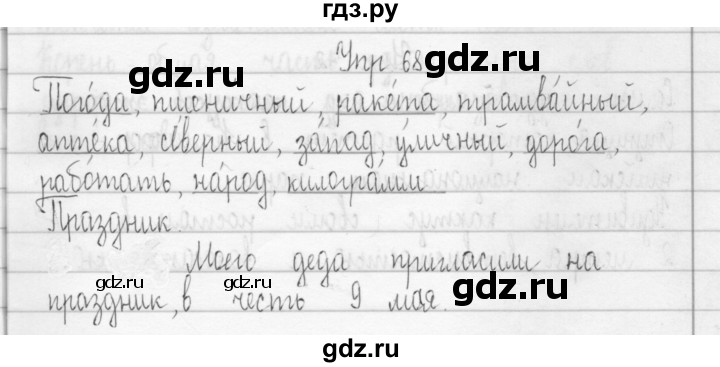 гдз.ру
Упр 68
Погода, пшеничный, ракета, трамвайный,
аптека северный, запад, уличный, дорога,
работать, народ килограмм
Праздник
Моего деда пригласили на
праздник, в честь 9 мая.
gdz.ru
gdz.ru
gdz.ru
gdz.ru